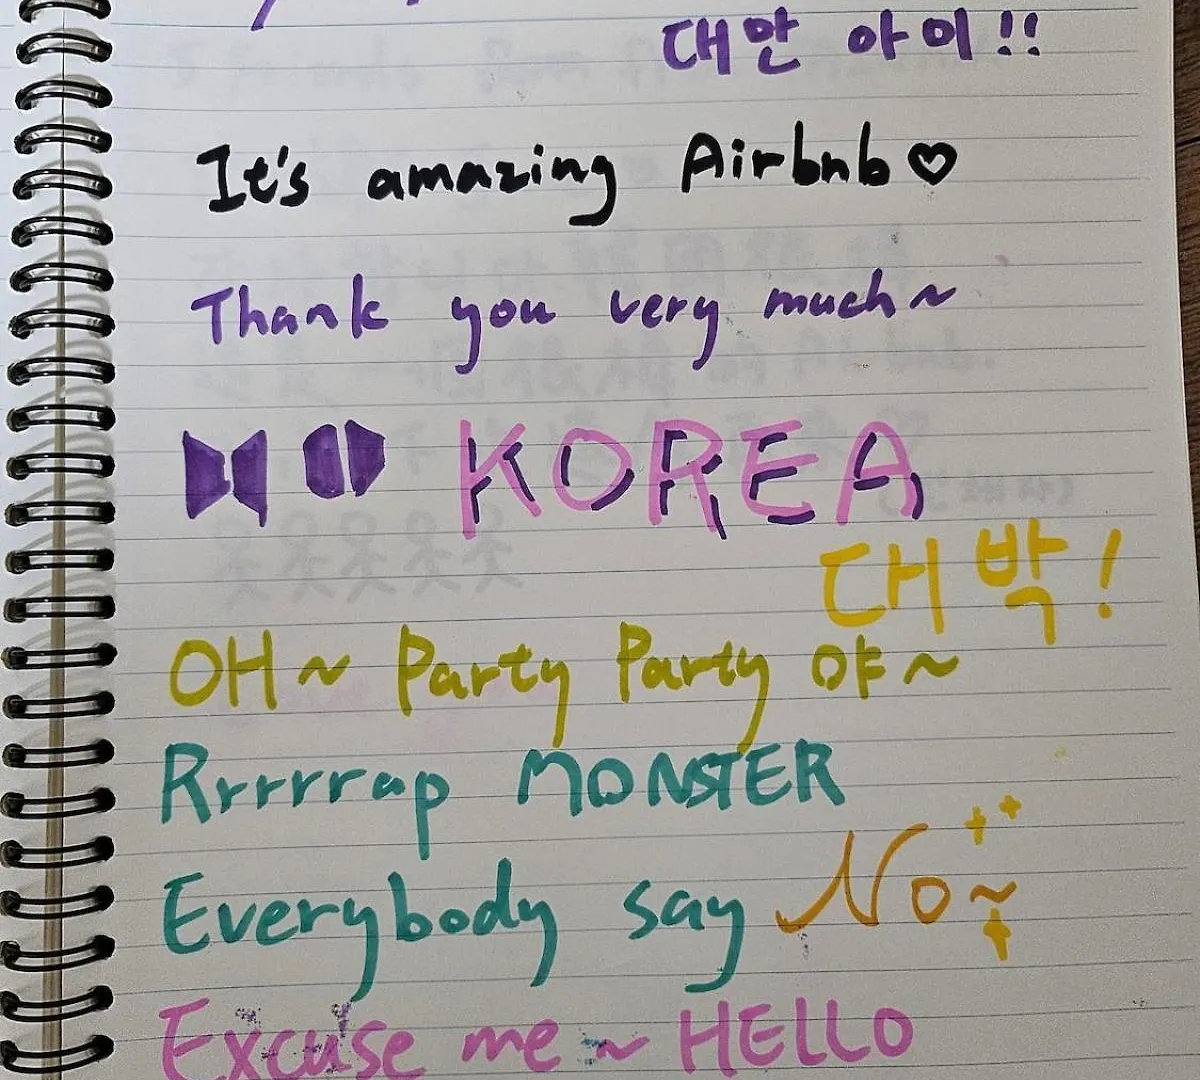 대안 아이!!
It's amazing Airbnb♡
Thank you very much~
KOREA
대박!
OH~ Party Party 야~
Rrrrrap MONSTER
Everybody say No~
Excuse me~ HELLO